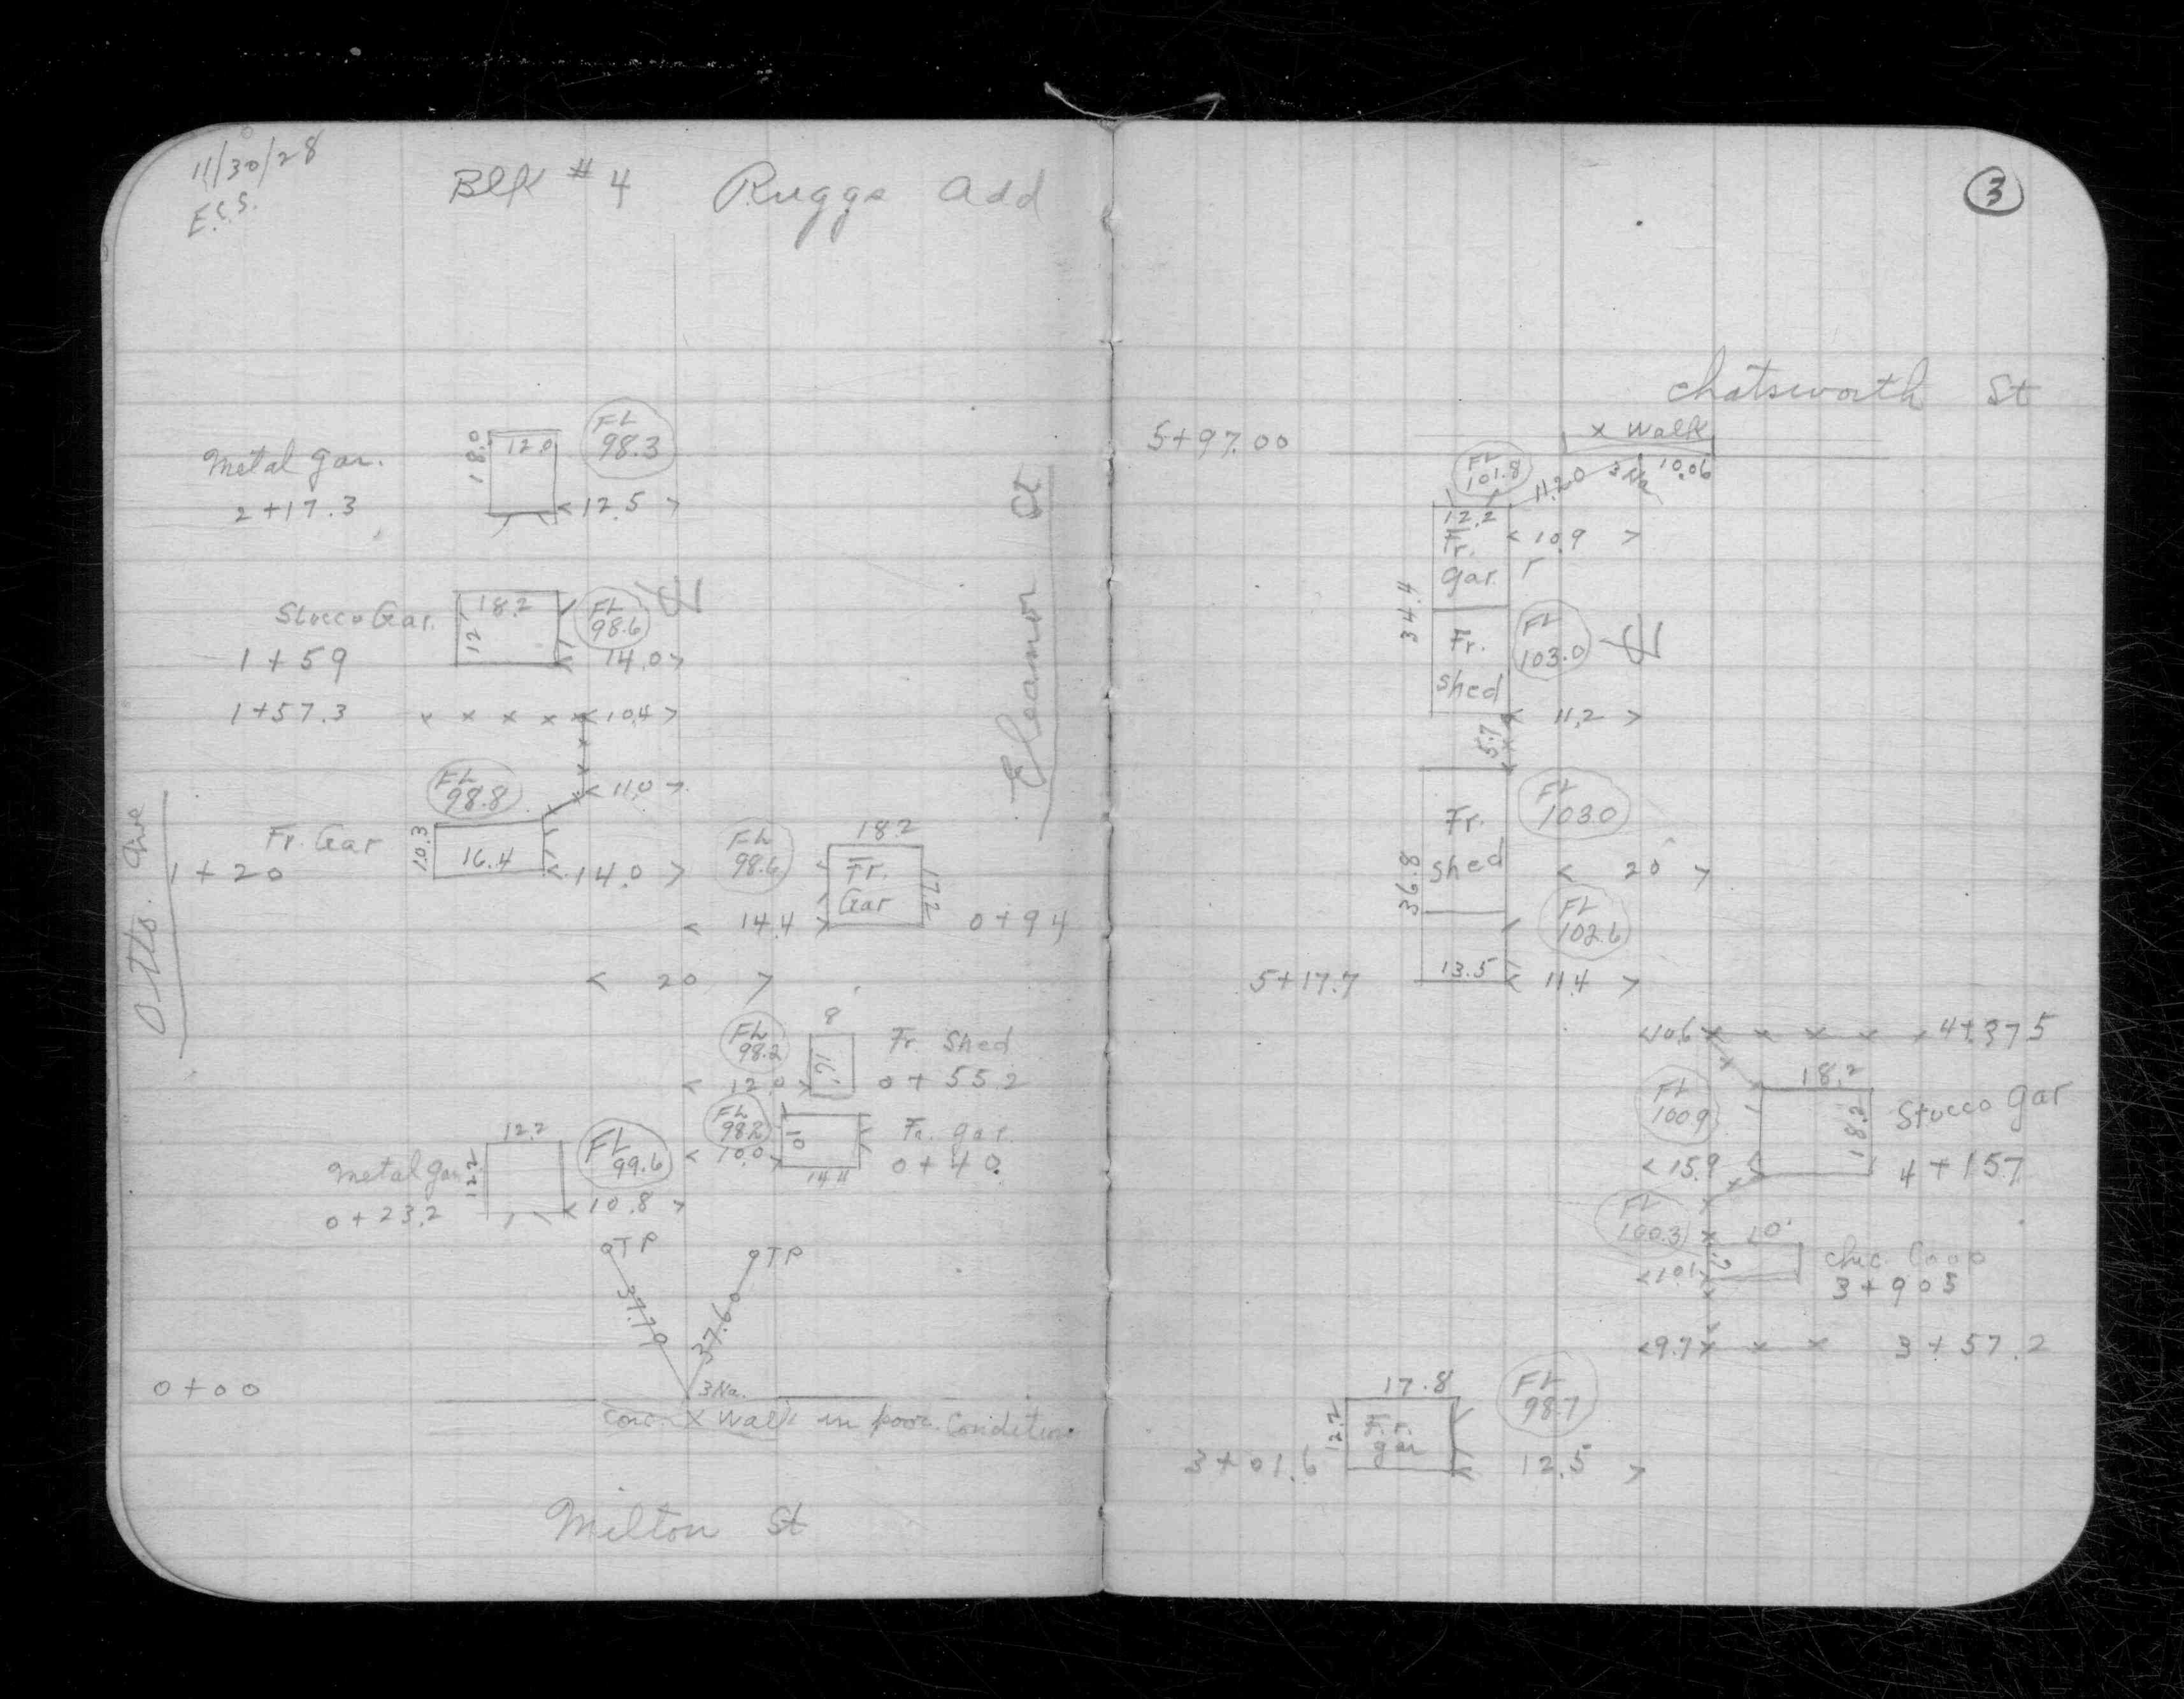 11/30/28
E.C.S.
Blk #4 Ruggs Add
FL
98.3
18.0
12.0
Metal gar.
2+17.3
<12.5>
Stucco Gar.
18.2
12
FL
98.6
1+59
14.0>
1+57.3
x x x x x <10.4>
FL
98.8
<11.0>
Fr. Gar
10.3
16.4
1+20
<14.0>
FL
98.6
18.2
Fr.
Gar
17.2
< 14.4 >
0+94
< 20 >
Otto. Ave
Eleanor St
8
FL
98.2
16
Fr. Shed
< 12.0 >
0+55.2
FL
98.2
10
Fr. gar.
< 10.0
14.4
0+40
12.2
FL
99.6
Metal gar
12.2
0+23.2
<10.8>
TP
TP
37.70
37.60
0+00
3Na.
conc. x walk in poor Condition
Milton St
3
Chatsworth St
5+97.00
x walk
FL
101.8
11.20
3 Na
10.06
12.2
Fr.
gar.
<10.9>
34.4
Fr.
shed
FL
103.0
< 11.2 >
5.7
Fr.
shed
FL
103.0
36.8
< 20 >
FL
102.6
5+17.7
13.5
< 11.4 >
<10.6 x x x x 4+37.5
18.2
FL
100.9
18.2
Stucco gar
<15.9
4+15.7
FL
100.3
10'
Chic. Coop
<10.1
3+90.5
<9.7 x x x 3+57.2
17.8
FL
98.7
12.2
Fr.
gar
3+01.6
12.5 >